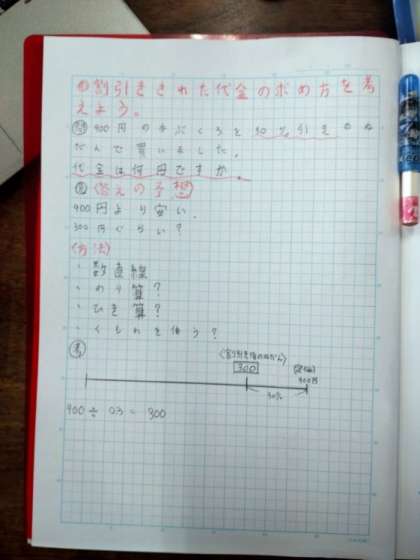 め 割引きされた代金の求め方を考
えよう。
問 400円の手ぶくろを30%引きのね
だんで買いました。
代金は何円ですか。
見 (答えの予想)
400円より安い。
300円ぐらい?
(方法)
・数直線
・わり算?
・ひき算?
・くもわを使う?
考
(割り引き後のねだん)
300
(定価)
400円
30%
400 ÷ 0.3 = 300